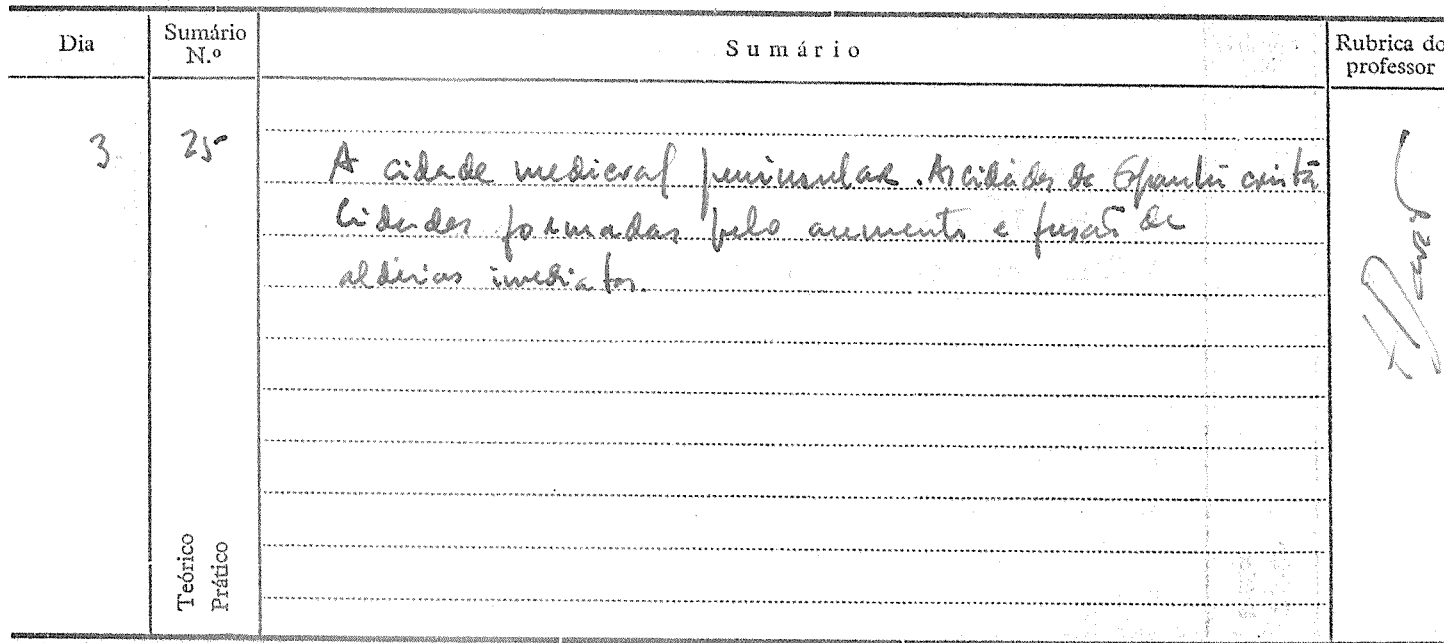 Dia
Sumário N.º
Sumário
Rubrica do professor
3
25
A cidade medieval peninsular. As cidades da Espanha cristã
Cidades formadas pelo aumento e fusão de
aldeias imediatas.
Teórico
Prático